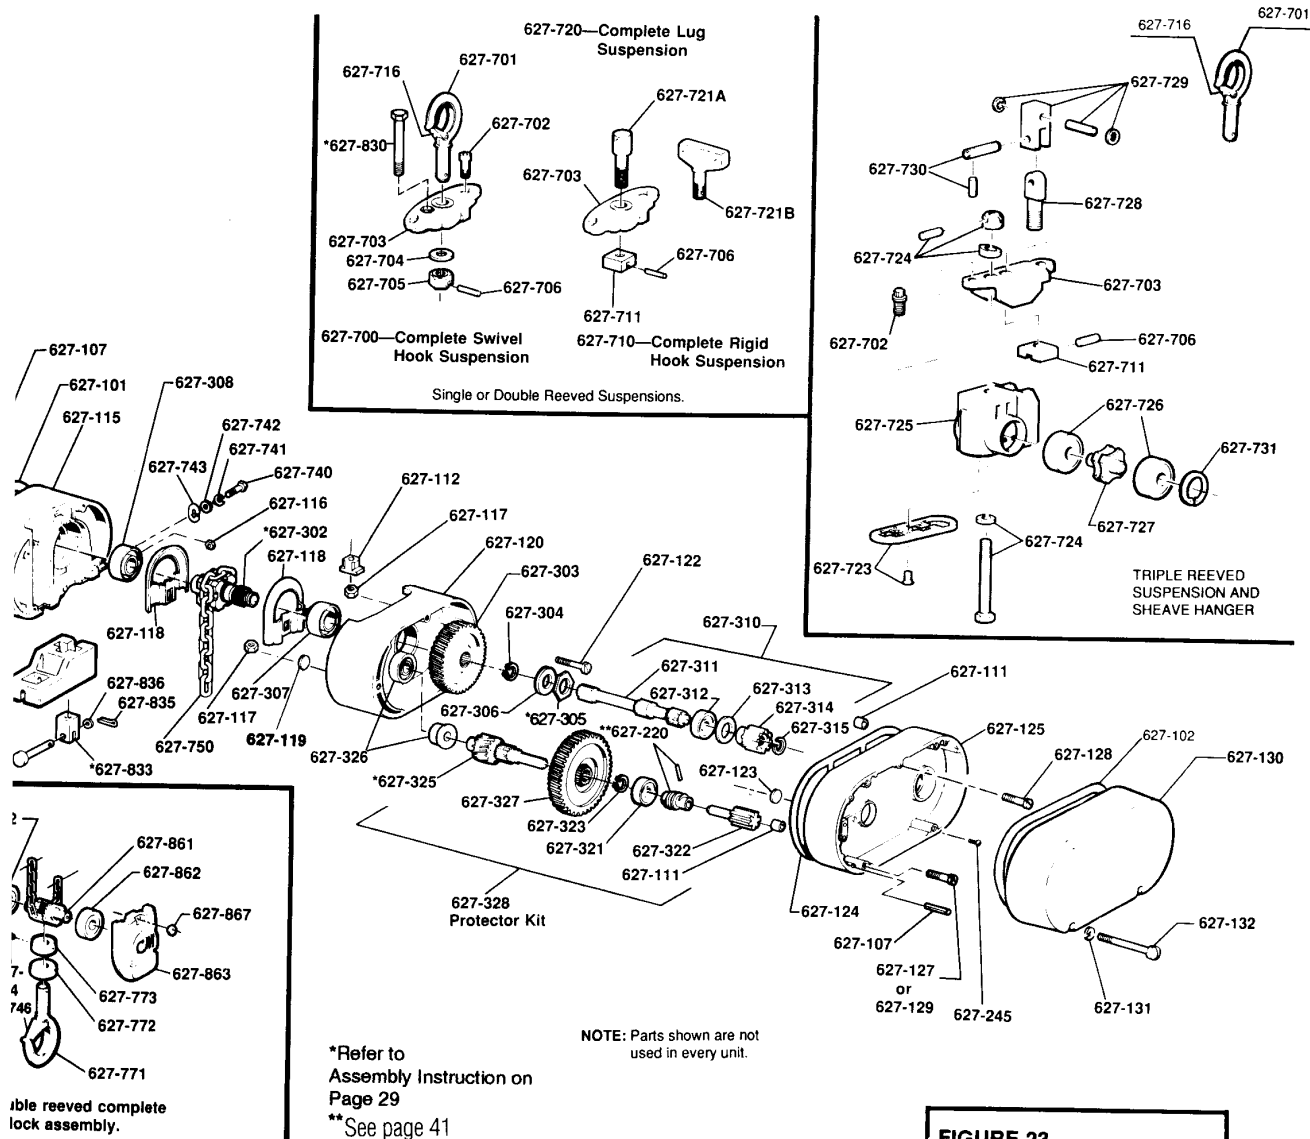 627-720—Complete Lug
Suspension
627-716
627-701
627-721A
*627-830
627-702
627-703
627-721B
627-703
627-704
627-705
627-706
627-706
627-711
627-700—Complete Swivel
Hook Suspension
627-710—Complete Rigid
Hook Suspension
Single or Double Reeved Suspensions.
627-716
627-701
627-729
627-730
627-728
627-724
627-703
627-702
627-706
627-711
627-725
627-726
627-731
627-727
627-724
627-723
TRIPLE REEVED
SUSPENSION AND
SHEAVE HANGER
627-107
627-101
627-308
627-115
627-742
627-741
627-743
627-740
627-116
*627-302
627-118
627-112
627-117
627-120
627-303
627-304
627-122
627-118
627-310
627-311
627-312
627-313
627-314
627-315
627-111
627-836
627-835
627-307
627-117
627-119
627-750
*627-833
627-306
*627-305
**627-220
627-326
*627-325
627-327
627-123
627-125
627-128
627-102
627-130
627-323
627-321
627-322
627-111
627-328
Protector Kit
627-124
627-107
627-127
or
627-129
627-245
627-132
627-131
2
627-861
627-862
627-867
627-863
7-
4
746
627-773
627-772
627-771
uble reeved complete
lock assembly.
*Refer to
Assembly Instruction on
Page 29
**See page 41
NOTE: Parts shown are not
used in every unit.
FIGURE 23